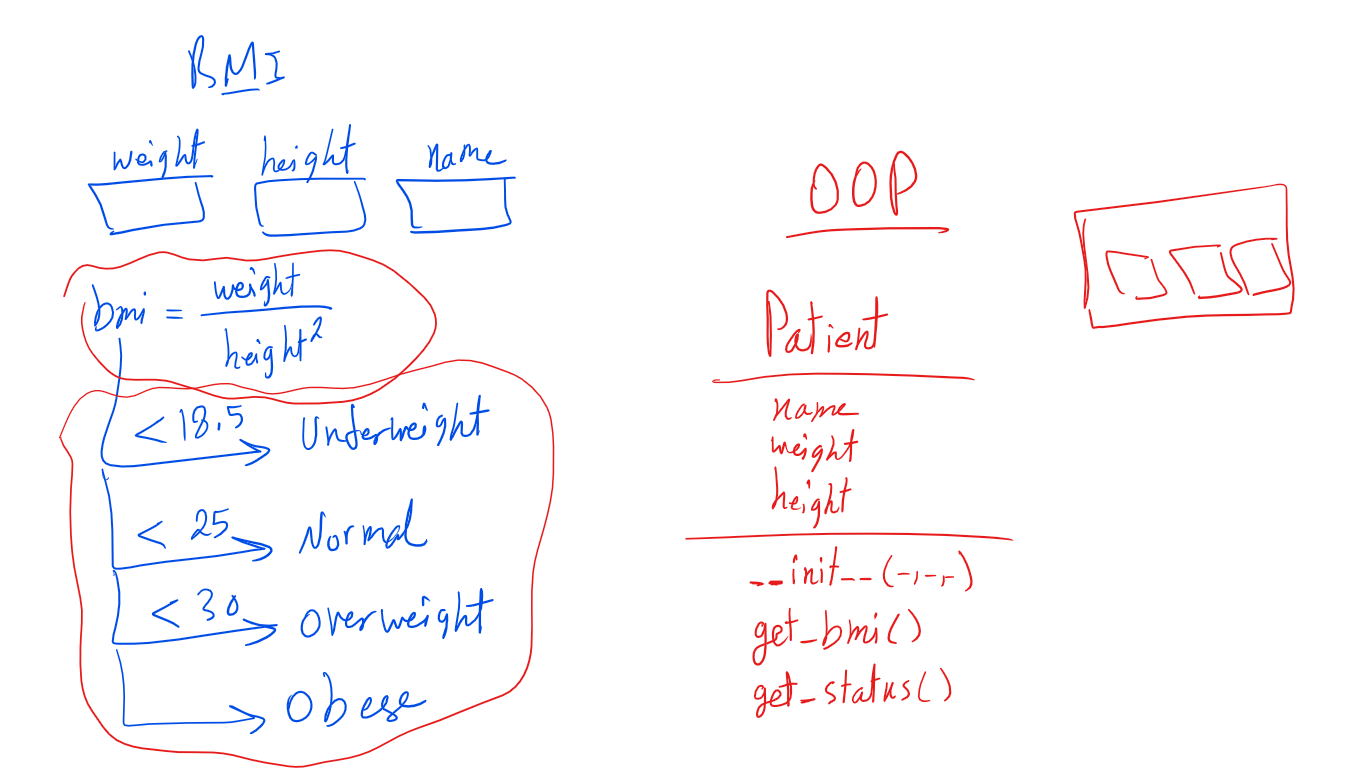 BMI
weight height name
bmi = weight / height²
< 18.5 Underweight
< 25 Normal
< 30 Overweight
Obese
OOP
Patient
name
weight
height
__init__(-,-,-)
get_bmi()
get_status()